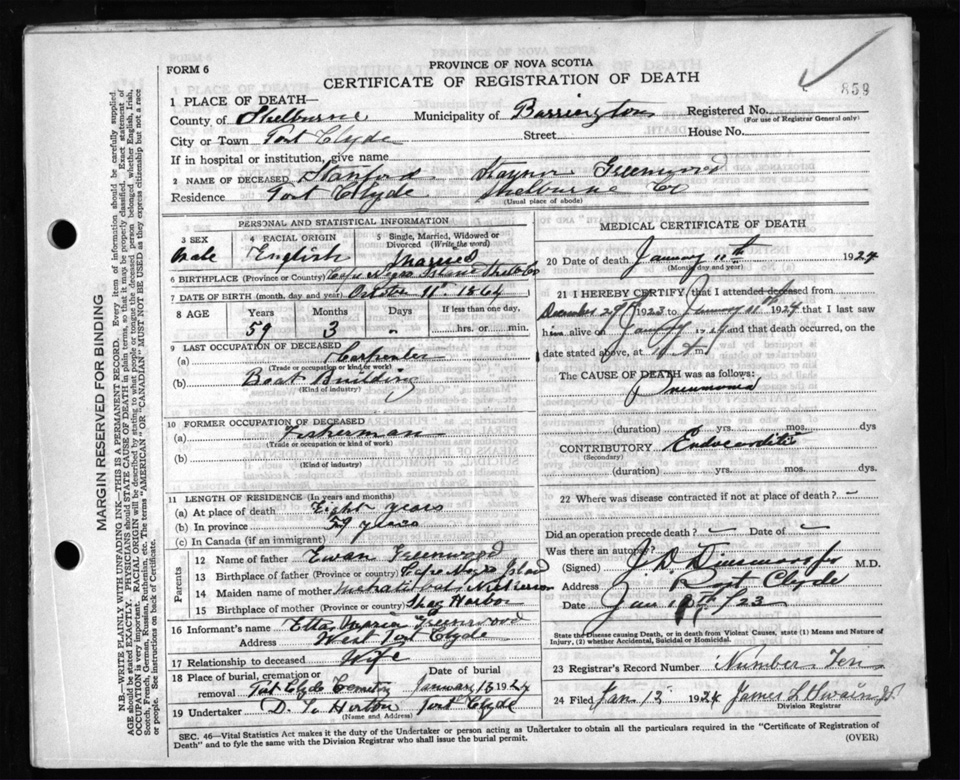 FORM 6
PROVINCE OF NOVA SCOTIA
CERTIFICATE OF REGISTRATION OF DEATH
859
1 PLACE OF DEATH—
County of Shelburne Municipality of Barrington Registered No.
(For use of Registrar General only)
City or Town Port Clyde Street House No.
If in hospital or institution, give name
2 NAME OF DECEASED Stanford Staynor Greenwood
Residence Port Clyde Shelburne Co
(Usual place of abode)
PERSONAL AND STATISTICAL INFORMATION
3 SEX
Male
4 RACIAL ORIGIN
English
5 Single, Married, Widowed or Divorced (Write the word)
Married
6 BIRTHPLACE (Province or Country) Cape Negro Island Shelb Co
7 DATE OF BIRTH (month, day and year) October 11 1864
8 AGE Years Months Days If less than one day,
59 3 " hrs. or min.
9 LAST OCCUPATION OF DECEASED
(a) Carpenter
(Trade or occupation or kind of work)
(b) Boat Building
(Kind of industry)
10 FORMER OCCUPATION OF DECEASED
(a) Fisherman
(Trade or occupation or kind of work)
(b)
(Kind of industry)
11 LENGTH OF RESIDENCE (In years and months)
(a) At place of death Eight years
(b) In province 59 years
(c) In Canada (if an immigrant)
Parents
12 Name of father Ewan Greenwood
13 Birthplace of father (Province or country) Cape Negro Island
14 Maiden name of mother
15 Birthplace of mother (Province or country) Shag Harbor
16 Informant's name Etta Greenwood
Address West Port Clyde
17 Relationship to deceased Wife
18 Place of burial, cremation or removal Port Clyde Cemetry
Date of burial January 13 1924
19 Undertaker D. T. Horton Port Clyde
(Name and Address)
MEDICAL CERTIFICATE OF DEATH
20 Date of death January 11th 1924
(Month day and year)
21 I HEREBY CERTIFY, that I attended deceased from
December 29th 1923 to January 11th 1924 that I last saw
him alive on 1924 and that death occurred, on
date stated above, at m
The CAUSE OF DEATH was as follows:
Pneumonia
(duration) yrs. mos. dys
CONTRIBUTORY Endocarditis
(Secondary)
(duration) yrs. mos. dys
22 Where was disease contracted if not at place of death? –
Did an operation precede death? – Date of –
Was there an autopsy? –
(Signed) M.D.
Address Port Clyde
Date
State the Disease causing Death, or in death from Violent Causes, state (1) Means and Nature of Injury, (2) whether Accidental, Suicidal or Homicidal.
23 Registrar's Record Number Number Ten
24 Filed Jan 12 1924 James L Swain Jr.
Division Registrar
SEC. 46—Vital Statistics Act makes it the duty of the Undertaker or person acting as Undertaker to obtain all the particulars required in the "Certificate of Registration of
Death" and to fyle the same with the Division Registrar who shall issue the burial permit. (OVER)
MARGIN RESERVED FOR BINDING
N.B.—WRITE PLAINLY WITH UNFADING INK—THIS IS A PERMANENT RECORD. Every item of information should be carefully supplied.
AGE should be stated EXACTLY. PHYSICIANS should STATE CAUSE OF DEATH in plain terms, so that it may be properly classified. Exact statement of
OCCUPATION is very important. RACIAL ORIGIN will be described by stating to what people or tongue the deceased person belonged whether English, Irish,
Scotch, French, German, Russian, Ruthenian, etc. The terms "AMERICAN" or "CANADIAN" MUST NOT BE USED as they express citizenship but not a race
or people. See instructions on back of Certificate.